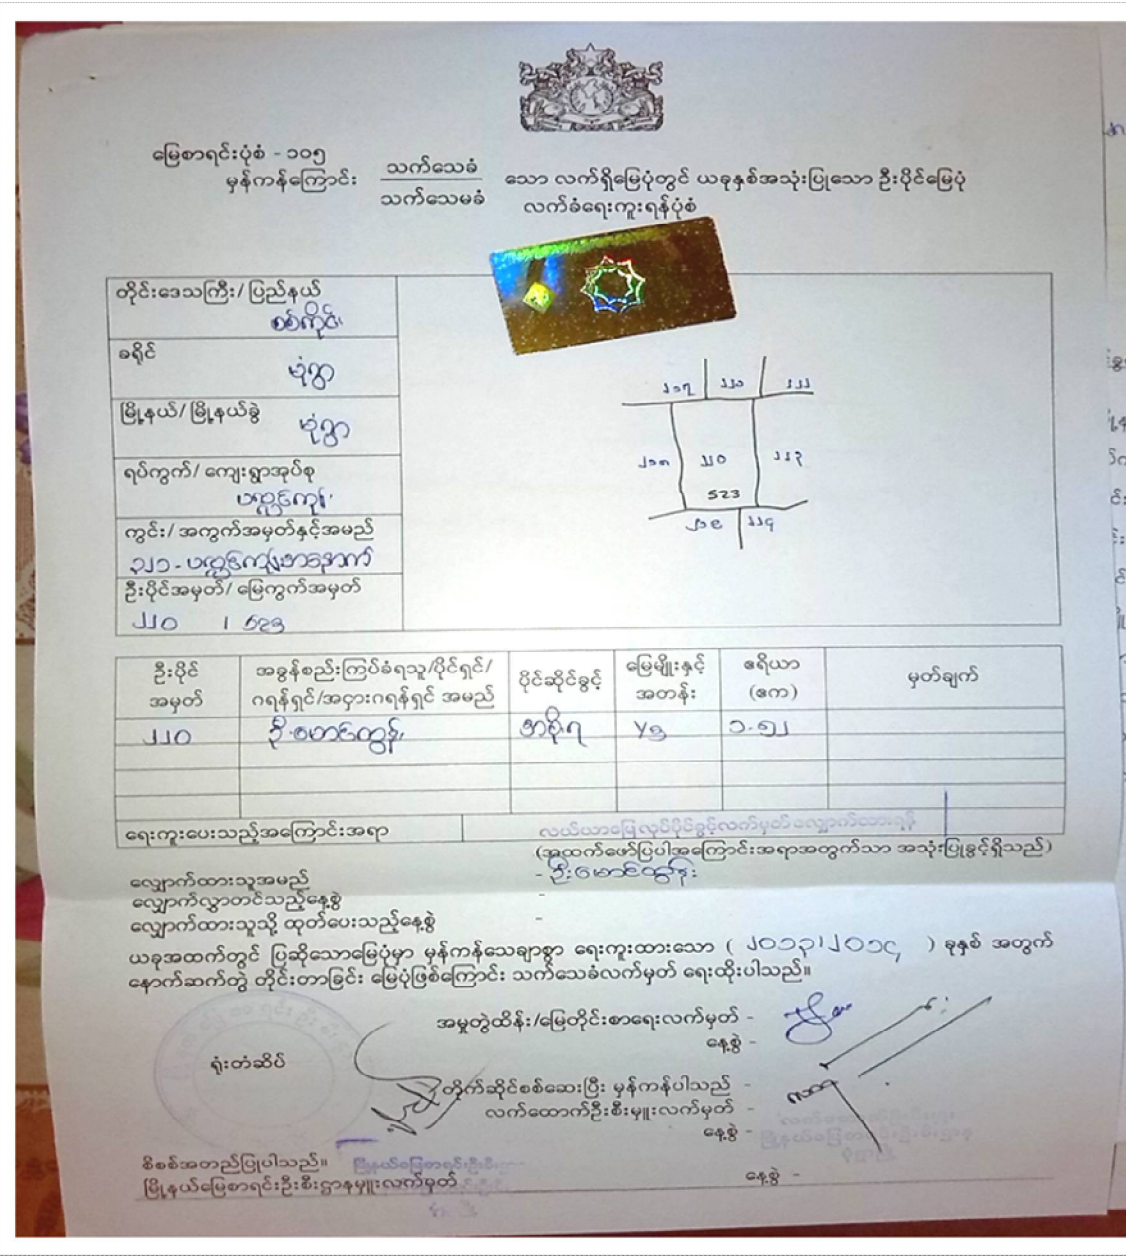 မြေစာရင်းပုံစံ - ၁၀၅
မှန်ကန်ကြောင်း သက်သေခံ သော လက်ရှိမြေပုံတွင် ယခုနှစ်အသုံးပြုသော ဦးပိုင်မြေပုံ
သက်သေမခံ လက်ခံရေးကူးရန်ပုံစံ
တိုင်းဒေသကြီး/ ပြည်နယ်
စစ်ကိုင်း
ခရိုင်
မုံရွာ
မြို့နယ်/ မြို့နယ်ခွဲ
မုံရွာ
ရပ်ကွက်/ ကျေးရွာအုပ်စု
ကွင်း/ အကွက်အမှတ်နှင့်အမည်
ဦးပိုင်အမှတ်/ မြေကွက်အမှတ်
၂၂၀ / ၆၂၃
၂၀၇ ၂၂၁
၂၂၀
523
၂၂၄
ဦးပိုင် အမှတ်
အခွန်စည်းကြပ်ခံရသူ/ပိုင်ရှင်/ ဂရန်ရှင်/အငှားဂရန်ရှင် အမည်
ပိုင်ဆိုင်ခွင့်
မြေမျိုးနှင့် အတန်း
ဧရိယာ (ဧက)
မှတ်ချက်
၂၂၀ ဦးမောင်ထွန်း အစိုးရ ၁.၅၂
ရေးကူးပေးသည့်အကြောင်းအရာ လယ်ယာမြေလုပ်ပိုင်ခွင့်လက်မှတ်လျှောက်ထားရန်
(အထက်ဖော်ပြပါအကြောင်းအရာအတွက်သာ အသုံးပြုခွင့်ရှိသည်)
လျှောက်ထားသူအမည် - ဦးမောင်ထွန်း
လျှောက်လွှာတင်သည့်နေ့စွဲ -
လျှောက်ထားသူသို့ ထုတ်ပေးသည့်နေ့စွဲ -
ယခုအထက်တွင် ပြဆိုသောမြေပုံမှာ မှန်ကန်သေချာစွာ ရေးကူးထားသော ( ၂၀၁၃၊၂၀၁၄ ) ခုနှစ် အတွက်
နောက်ဆက်တွဲ တိုင်းတာခြင်း မြေပုံဖြစ်ကြောင်း သက်သေခံလက်မှတ် ရေးထိုးပါသည်။
အမှုတွဲထိန်း/မြေတိုင်းစာရေးလက်မှတ် -
နေ့စွဲ -
ရုံးတံဆိပ်
တိုက်ဆိုင်စစ်ဆေးပြီး မှန်ကန်ပါသည် -
လက်ထောက်ဦးစီးမှူးလက်မှတ် -
နေ့စွဲ -
စိစစ်အတည်ပြုပါသည်။
မြို့နယ်မြေစာရင်းဦးစီးဌာနမှူးလက်မှတ် နေ့စွဲ -